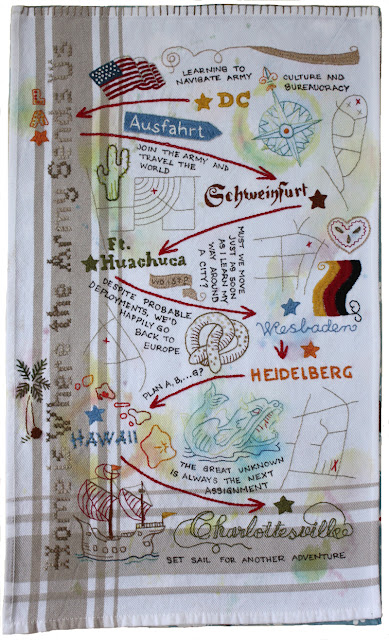 Home is Where the Army Sends Us
LEARNING TO
NAVIGATE ARMY
CULTURE AND
BUREAUCRACY
DC
Ausfahrt
JOIN THE ARMY AND
TRAVEL THE
WORLD
Schweinfurt
MUST WE MOVE
JUST AS SOON
AS I LEARN MY
WAY AROUND
A CITY?
Ft.
Huachuca
WO IST?
DESPITE PROBABLE
DEPLOYMENTS, WE'D
HAPPILY GO
BACK TO
EUROPE
Wiesbaden
HEIDELBERG
PLAN A, B,...G?
HAWAII
THE GREAT UNKNOWN
IS ALWAYS THE NEXT
ASSIGNMENT
Charlottesville
SET SAIL FOR ANOTHER ADVENTURE